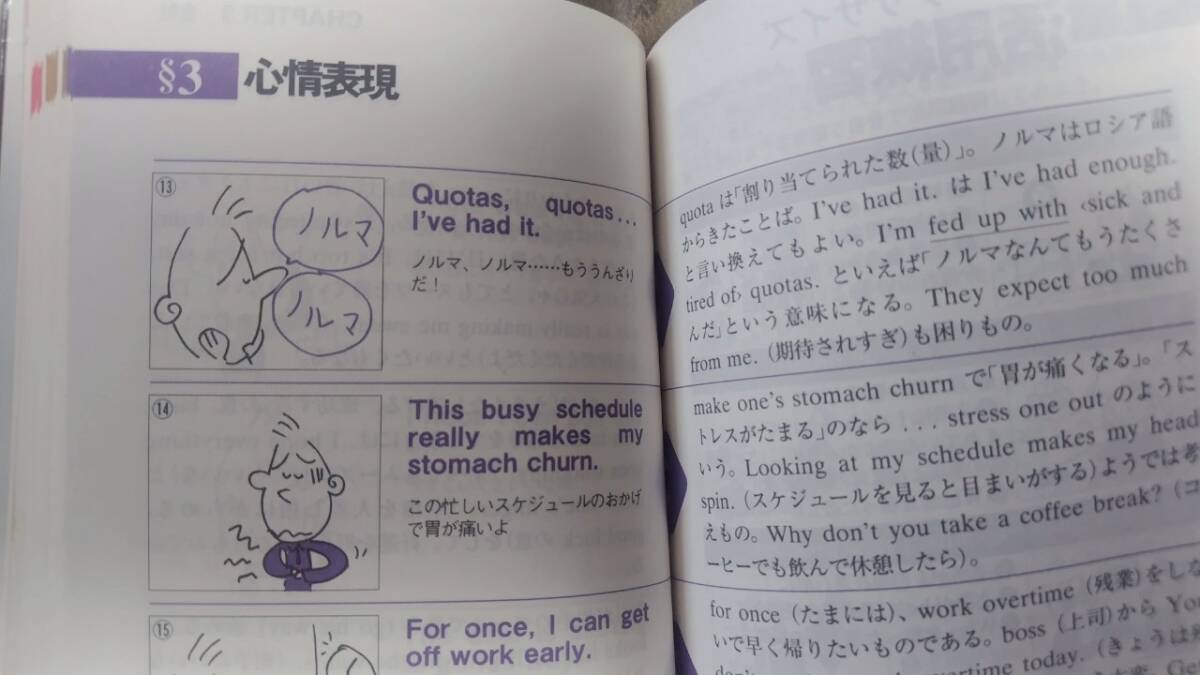 §3 心情表現
⑬
ノルマ
ノルマ
Quotas, quotas...
I've had it.
ノルマ、ノルマ……もううんざり
だ!
⑭
This busy schedule
really makes my
stomach churn.
この忙しいスケジュールのおかげ
で胃が痛いよ
⑮
For once, I can get
off work early.
quota は「割り当てられた数(量)」。ノルマはロシア語
からきたことば。I've had it. は I've had enough.
と言い換えてもよい。I'm fed up with ‹sick and
tired of› quotas. といえば「ノルマなんてもうたくさ
んだ」という意味になる。They expect too much
from me. (期待されすぎ)も困りもの。
make one's stomach churn で「胃が痛くなる」。「ス
トレスがたまる」のなら ... stress one out のように
いう。Looking at my schedule makes my head
spin. (スケジュールを見ると目まいがする)ようでは考
えもの。Why don't you take a coffee break? (コ
ーヒーでも飲んで休憩したら)。
for once (たまには)、work overtime (残業)をしな
いで早く帰りたいものである。boss (上司)から You
overtime today. (きょうは